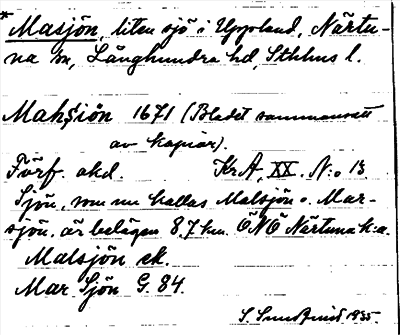 * Masjön, liten sjö i Uppland, Närtu-
na sn, Långhundra hd, Sthlms l.
Mahsiön 1671 (Bladet sammansatt
av kopior).
Förf. okd. KrA, XX. N:o 13
Sjön, som nu kallas Malsjön o. Mar-
sjön, är belägen 8,7 km. ÖNÖ Närtuna k:a.
Malsjön ek.
Mar Sjön G. 84.
S. 1935